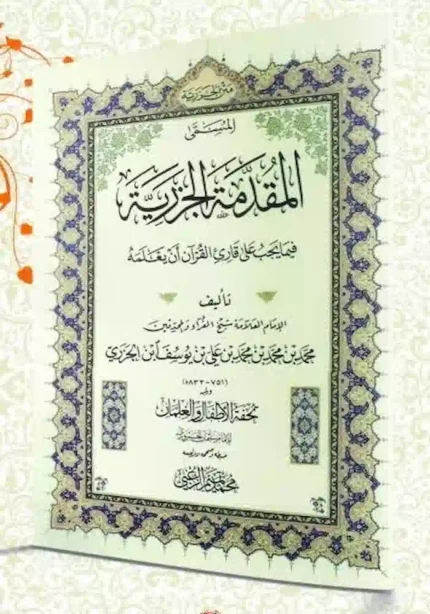 متن الجزرية
المسمى
المقدمة الجزرية
فيما يجب على قارئ القرآن أن يعلمه
تأليف
الإمام العلامة شيخ القراء والمجودين
محمد بن محمد بن محمد بن علي بن يوسف ابن الجزري
(٧٥١-٨٣٣هـ)
ويليه
تحفة الأطفال والغلمان
للإمام سليمان الجمزوري
محمد تميم الزعبي